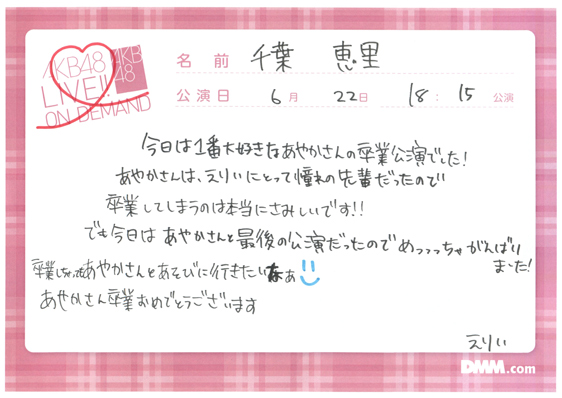 AKB48
LIVE!!
ON DEMAND
AKB
48
名前 千葉 恵里
公演日 6月 22日 18:15 公演
今日は1番大好きなあやかさんの卒業公演でした!
あやかさんは、えりいにとって憧れの先輩だったので
卒業してしまうのは本当にさみしいです!!
でも今日はあやかさんと最後の公演だったのでめっっっちゃがんばり
ました!
卒業しちゃってもあやかさんとあそびに行きたいなぁ
あやかさん卒業おめでとうございます
えりい
DMM.com